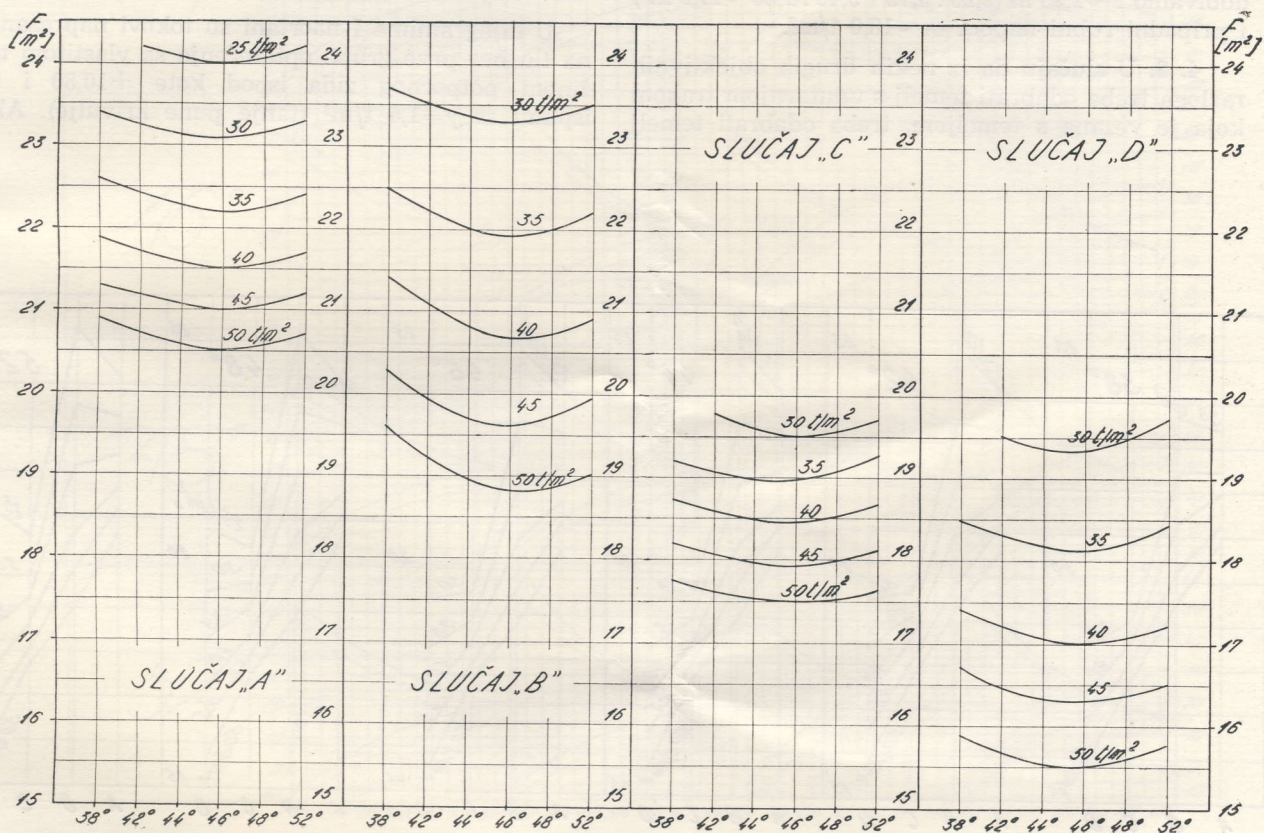 F
[m²]
24
23
22
21
20
19
18
17
16
15
25 t/m²
30
35
40
45
50 t/m²
SLUČAJ „A"
38° 42° 44° 46° 48° 52°
24
23
22
21
20
19
18
17
16
15
30 t/m²
35
40
45
50 t/m²
SLUČAJ „B"
38° 42° 44° 46° 48° 52°
24
23
22
21
20
19
18
17
16
15
SLUČAJ „C"
30 t/m²
35
40
45
50 t/m²
38° 42° 44° 46° 48° 52°
24
23
22
21
20
19
18
17
16
15
SLUČAJ „D"
30 t/m²
35
40
45
50 t/m²
38° 42° 44° 46° 48° 52°
F
[m²]
24
23
22
21
20
19
18
17
16
15